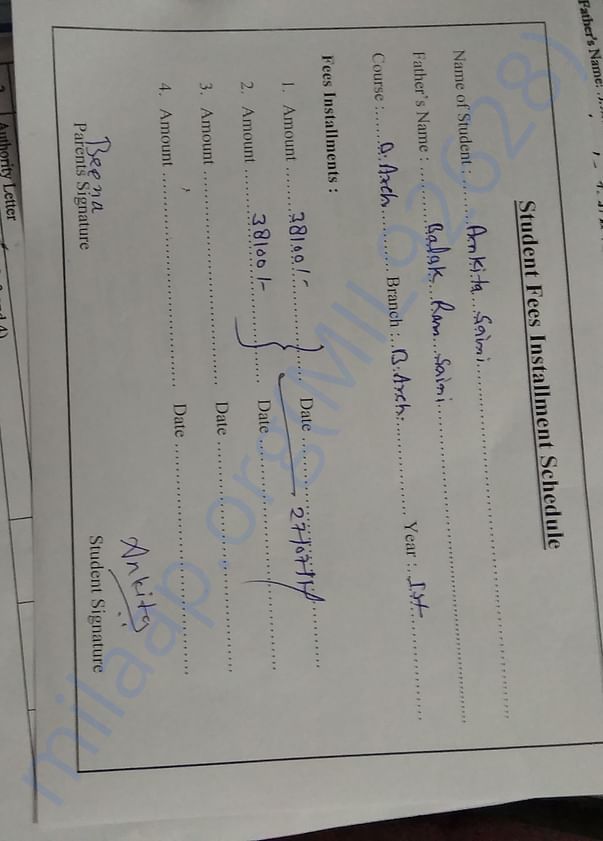 Father's Name:
Student Fees Installment Schedule
Name of Student : Ankita Saini
Father's Name : Balak Ram Saini
Course : B. Arch. Branch : B. Arch. Year : Ist
Fees Installments :
1. Amount 38100/- Date
2. Amount 38100/- Date
3. Amount Date
4. Amount Date
Beena Ankita
Parents Signature Student Signature
Authority Letter
milaap.org/MIL92628